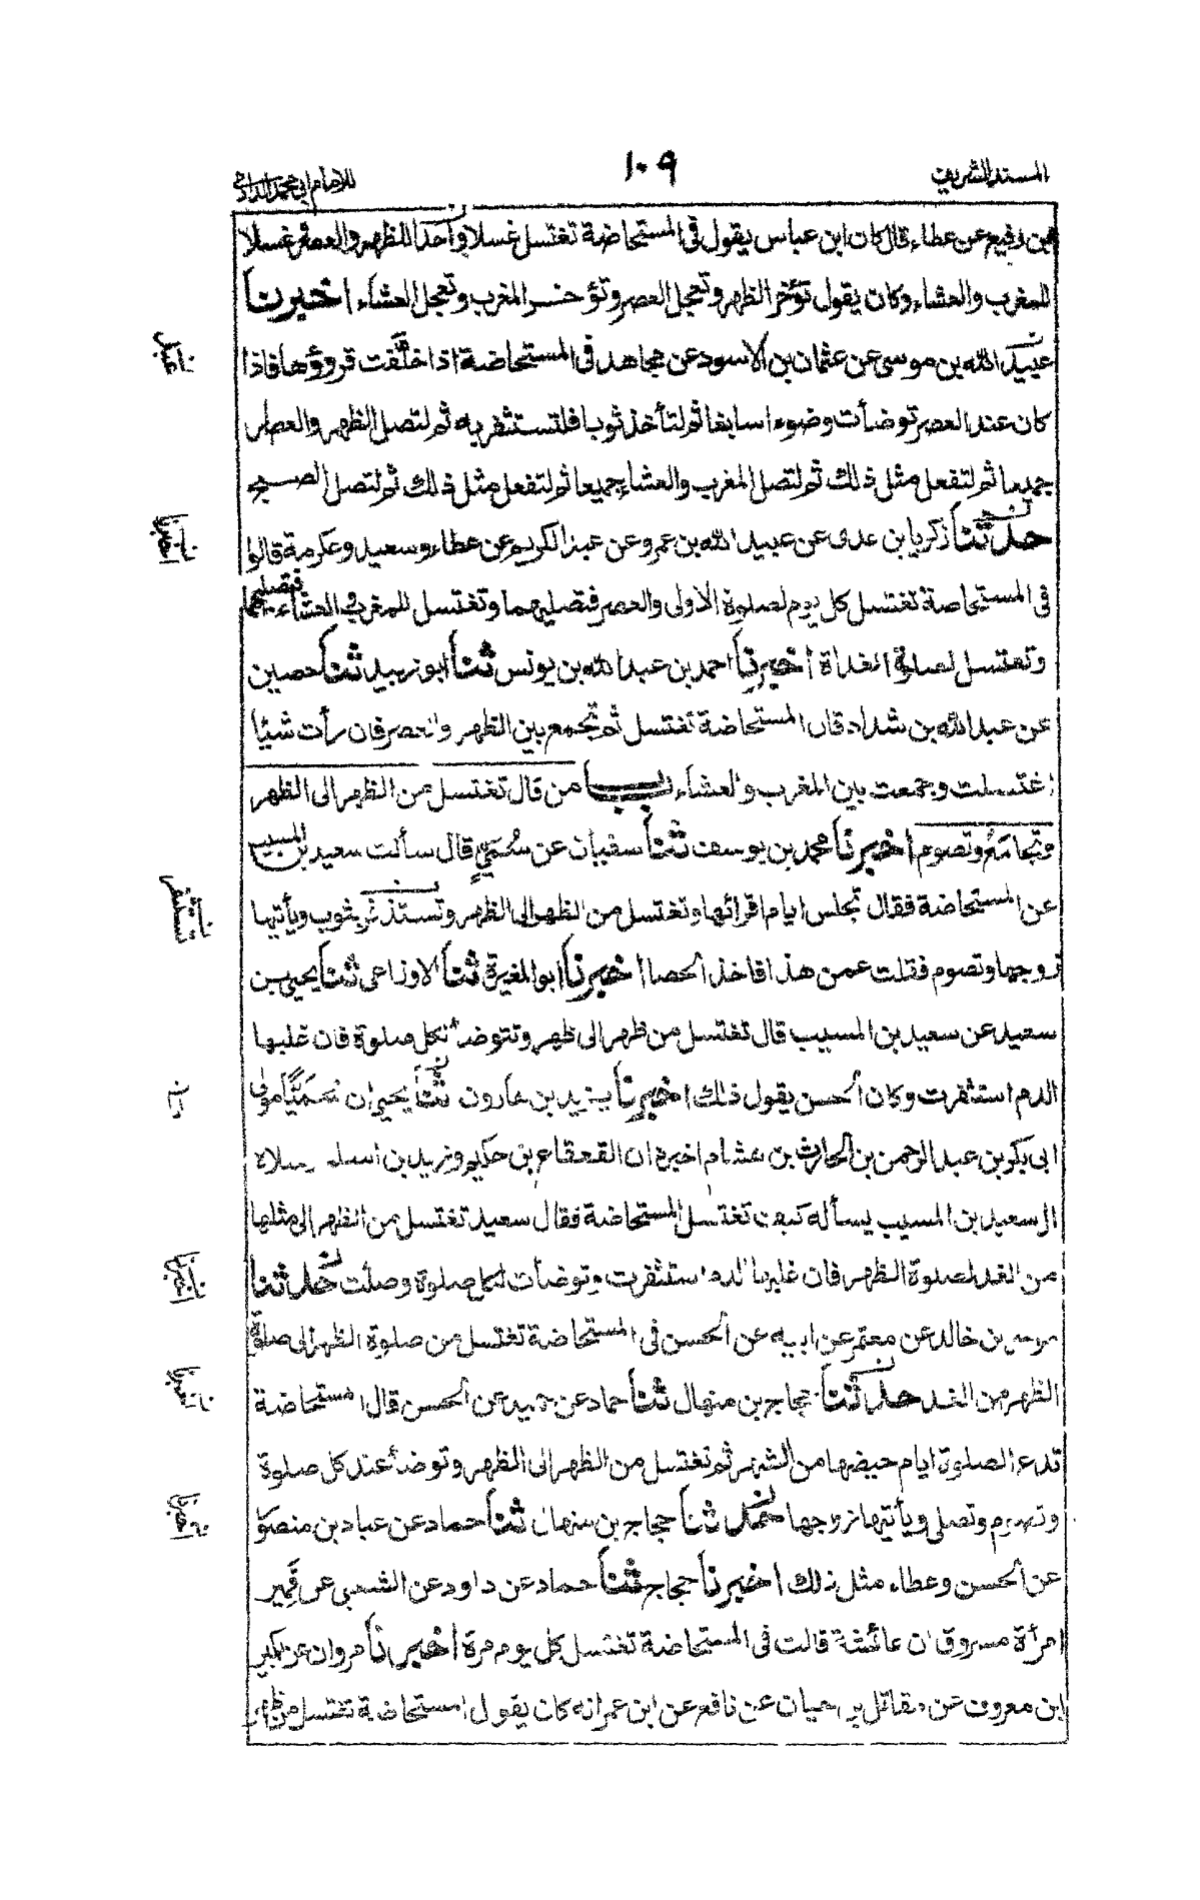 المسند الشريف
١٠٩
للامام ابي محمد الدارمي
بن رفيع عن عطاء قال كان ابن عباس يقول في المستحاضة تغتسل غسلا واحدا للظهر والعصر وغسلا
للمغرب والعشاء وكان يقول تؤخر الظهر وتعجل العصر وتؤخر المغرب وتعجل العشاء اخبرنا
عبيد الله بن موسى عن عثمان بن الاسود عن مجاهد في المستحاضة اذا خلفت قروؤها فاذا
كان عند العصر توضأت وضوءا سابغا ثم لتأخذ ثوبا فلتستثفر به ثم لتصل الظهر والعصر
جميعا ثم لتفعل مثل ذلك ثم لتصل المغرب والعشاء جميعا ثم لتفعل مثل ذلك ثم لتصل الصبح
حدثنا زكريا بن عدى عن عبيد الله بن عمرو عن عبد الكريم عن عطاء وسعيد وعكرمة قالوا
في المستحاضة تغتسل كل يوم لصلوة الاولى والعصر فتصليهما وتغتسل للمغرب والعشاء فتصليهما
وتغتسل لصلوة الغداة اخبرنا احمد بن عبد الله بن يونس ثنا ابو زبيد ثنا حصين
عن عبد الله بن شداد قال المستحاضة تغتسل ثم تجمع بين الظهر والعصر فان رأت شيئا
اغتسلت وجمعت بين المغرب والعشاء باب من قال تغتسل من الظهر الى الظهر
وتجامع وتصوم اخبرنا محمد بن يوسف ثنا سفيان عن سُمَيٍّ قال سألت سعيد بن المسيب
عن المستحاضة فقال تجلس ايام اقرائها وتغتسل من الظهر الى الظهر وتستذفر بثوب ويأتيها
زوجها وتصوم فقلت عمن هذا فاخذ الحصا اخبرنا ابو المغيرة ثنا الاوزاعى ثنا يحيى بن
سعيد عن سعيد بن المسيب قال تغتسل من ظهر الى ظهر وتتوضأ لكل صلوة فان غلبها
الدم استثفرت وكان الحسن يقول ذلك اخبرنا يزيد بن هارون ثنا يحيى ان سُمَيًّا مولى
ابى بكر بن عبد الرحمن بن الحارث بن هشام اخبره ان القعقاع بن حكيم وزيد بن اسلم ارسلاه
الى سعيد بن المسيب يسأله كيف تغتسل المستحاضة فقال سعيد تغتسل من الظهر الى مثلها
من الغد لصلوة الظهر فان غلبها الدم استثفرت وتوضأت لكل صلوة وصلت حدثنا
بن خالد عن معتمر عن ابيه عن الحسن في المستحاضة تغتسل من صلوة الظهر الى صلوة
الظهر من الغد حدثنا حجاج بن منهال ثنا حماد عن حميد عن الحسن قال المستحاضة
تدع الصلوة ايام حيضها من الشهر ثم تغتسل من الظهر الى الظهر وتوضأ عند كل صلوة
وتصوم وتصلى ويأتيها زوجها حدثنا حجاج بن منهال ثنا حماد عن عباد بن منصور
عن الحسن وعطاء مثل ذلك اخبرنا حجاج ثنا حماد عن داود عن الشعبى عن قَمِير
امرأة مسروق ان عائشة قالت في المستحاضة تغتسل كل يوم مرة اخبرنا مروان عن بكير
ابن معروف عن مقاتل بن حيان عن نافع عن ابن عمر انه كان يقول المستحاضة تغتسل من ظهر